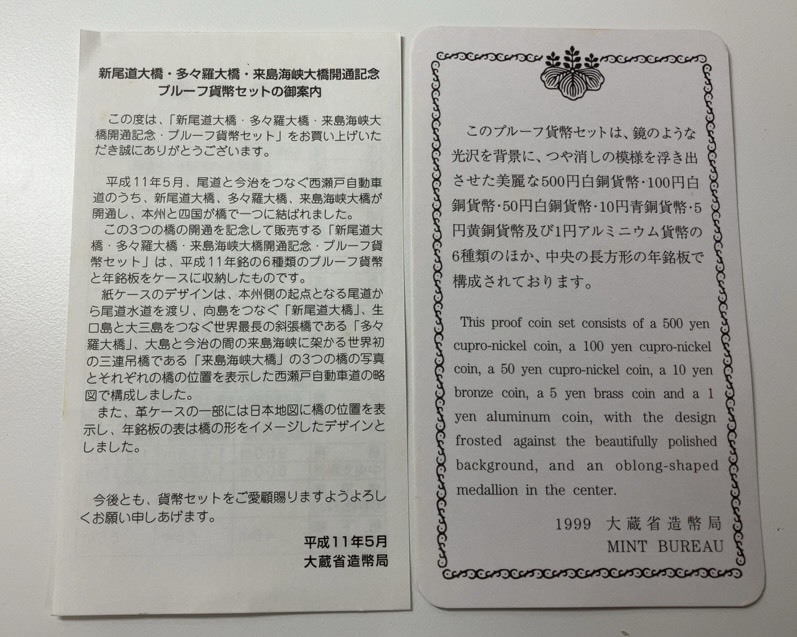 新尾道大橋・多々羅大橋・来島海峡大橋開通記念
プルーフ貨幣セットの御案内
この度は、「新尾道大橋・多々羅大橋・来島海峡大
橋開通記念・プルーフ貨幣セット」をお買い上げいた
だき誠にありがとうございます。
平成11年5月、尾道と今治をつなぐ西瀬戸自動車
道のうち、新尾道大橋、多々羅大橋、来島海峡大橋が
開通し、本州と四国が橋で一つに結ばれました。
この3つの橋の開通を記念して販売する「新尾道大
橋・多々羅大橋・来島海峡大橋開通記念・プルーフ貨
幣セット」は、平成11年銘の6種類のプルーフ貨幣
と年銘板をケースに収納したものです。
紙ケースのデザインは、本州側の起点となる尾道か
ら尾道水道を渡り、向島をつなぐ「新尾道大橋」、生
口島と大三島をつなぐ世界最長の斜張橋である「多々
羅大橋」、大島と今治の間の来島海峡に架かる世界初
の三連吊橋である「来島海峡大橋」の3つの橋の写真
とそれぞれの橋の位置を表示した西瀬戸自動車道の略
図で構成しました。
また、革ケースの一部には日本地図に橋の位置を表
示し、年銘板の表は橋の形をイメージしたデザインと
しました。
今後とも、貨幣セットをご愛顧賜りますようよろし
くお願い申しあげます。
平成11年5月
大蔵省造幣局
このプルーフ貨幣セットは、鏡のような
光沢を背景に、つや消しの模様を浮き出
させた美麗な500円白銅貨幣・100円白
銅貨幣・50円白銅貨幣・10円青銅貨幣・5
円黄銅貨幣及び1円アルミニウム貨幣の
6種類のほか、中央の長方形の年銘板で
構成されております。
This proof coin set consists of a 500 yen
cupro-nickel coin, a 100 yen cupro-nickel
coin, a 50 yen cupro-nickel coin, a 10 yen
bronze coin, a 5 yen brass coin and a 1
yen aluminum coin, with the design
frosted against the beautifully polished
background, and an oblong-shaped
medallion in the center.
1999 大蔵省造幣局
MINT BUREAU